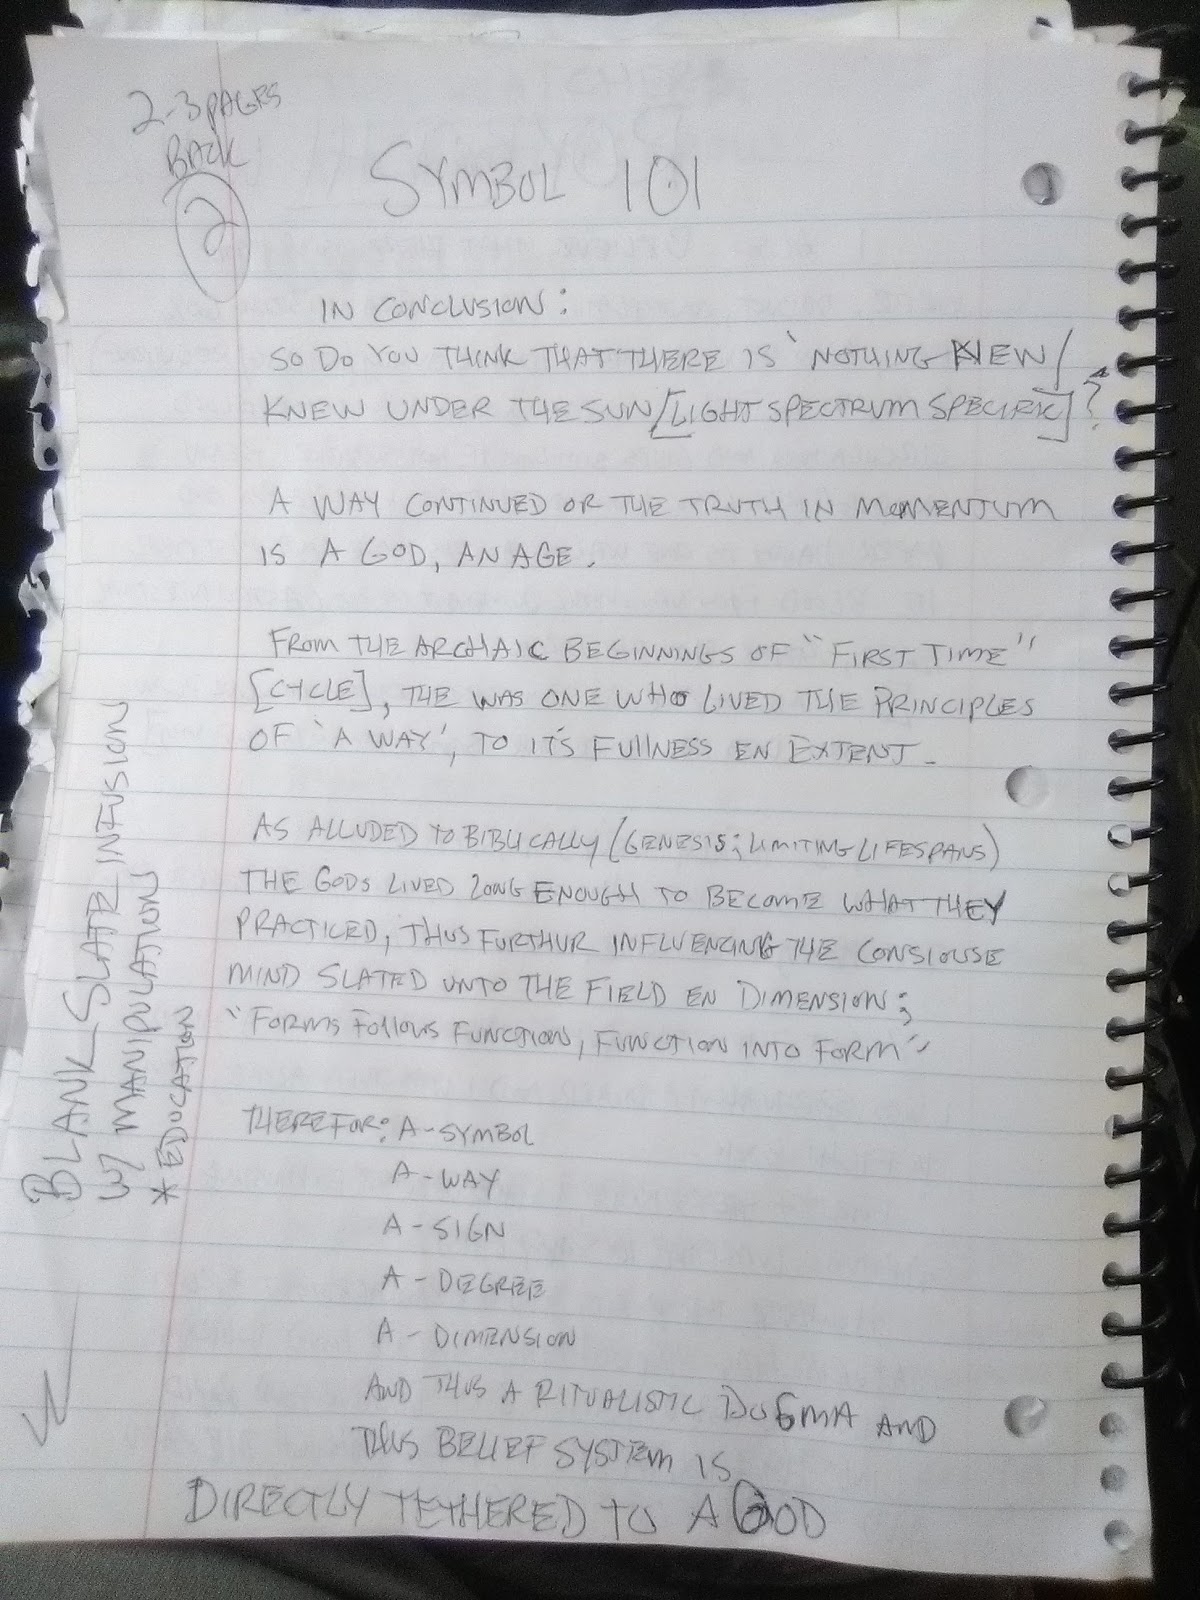 2-3 PAGES
BACK
2
SYMBOL 101
IN CONCLUSION:
SO DO YOU THINK THAT THERE IS 'NOTHING NEW/
KNEW UNDER THE SUN/[LIGHT SPECTRUM SPECIFIC]'?
A WAY CONTINUED OR THE TRUTH IN MOMENTUM
IS A GOD, AN AGE.
FROM THE ARCHAIC BEGINNINGS OF "FIRST TIME"
[CYCLE], THE WAS ONE WHO LIVED THE PRINCIPLES
OF 'A WAY', TO IT'S FULLNESS EN EXTENT.
AS ALLUDED TO BIBLICALLY (GENESIS; LIMITING LIFESPANS)
THE GODS LIVED LONG ENOUGH TO BECOME WHAT THEY
PRACTICED, THUS FURTHUR INFLUENCING THE CONSIOUSE
MIND SLATED UNTO THE FIELD EN DIMENSION;
"FORMS FOLLOWS FUNCTION, FUNCTION INTO FORM"
THEREFOR: A-SYMBOL
A-WAY
A-SIGN
A-DEGREE
A-DIMENSION
AND THUS A RITUALISTIC DOGMA AND
THUS BELIEF SYSTEM IS
DIRECTLY TETHERED TO A GOD
BLANK SLATE INFUSION
W/ MANIPULATION
*EDUCATION